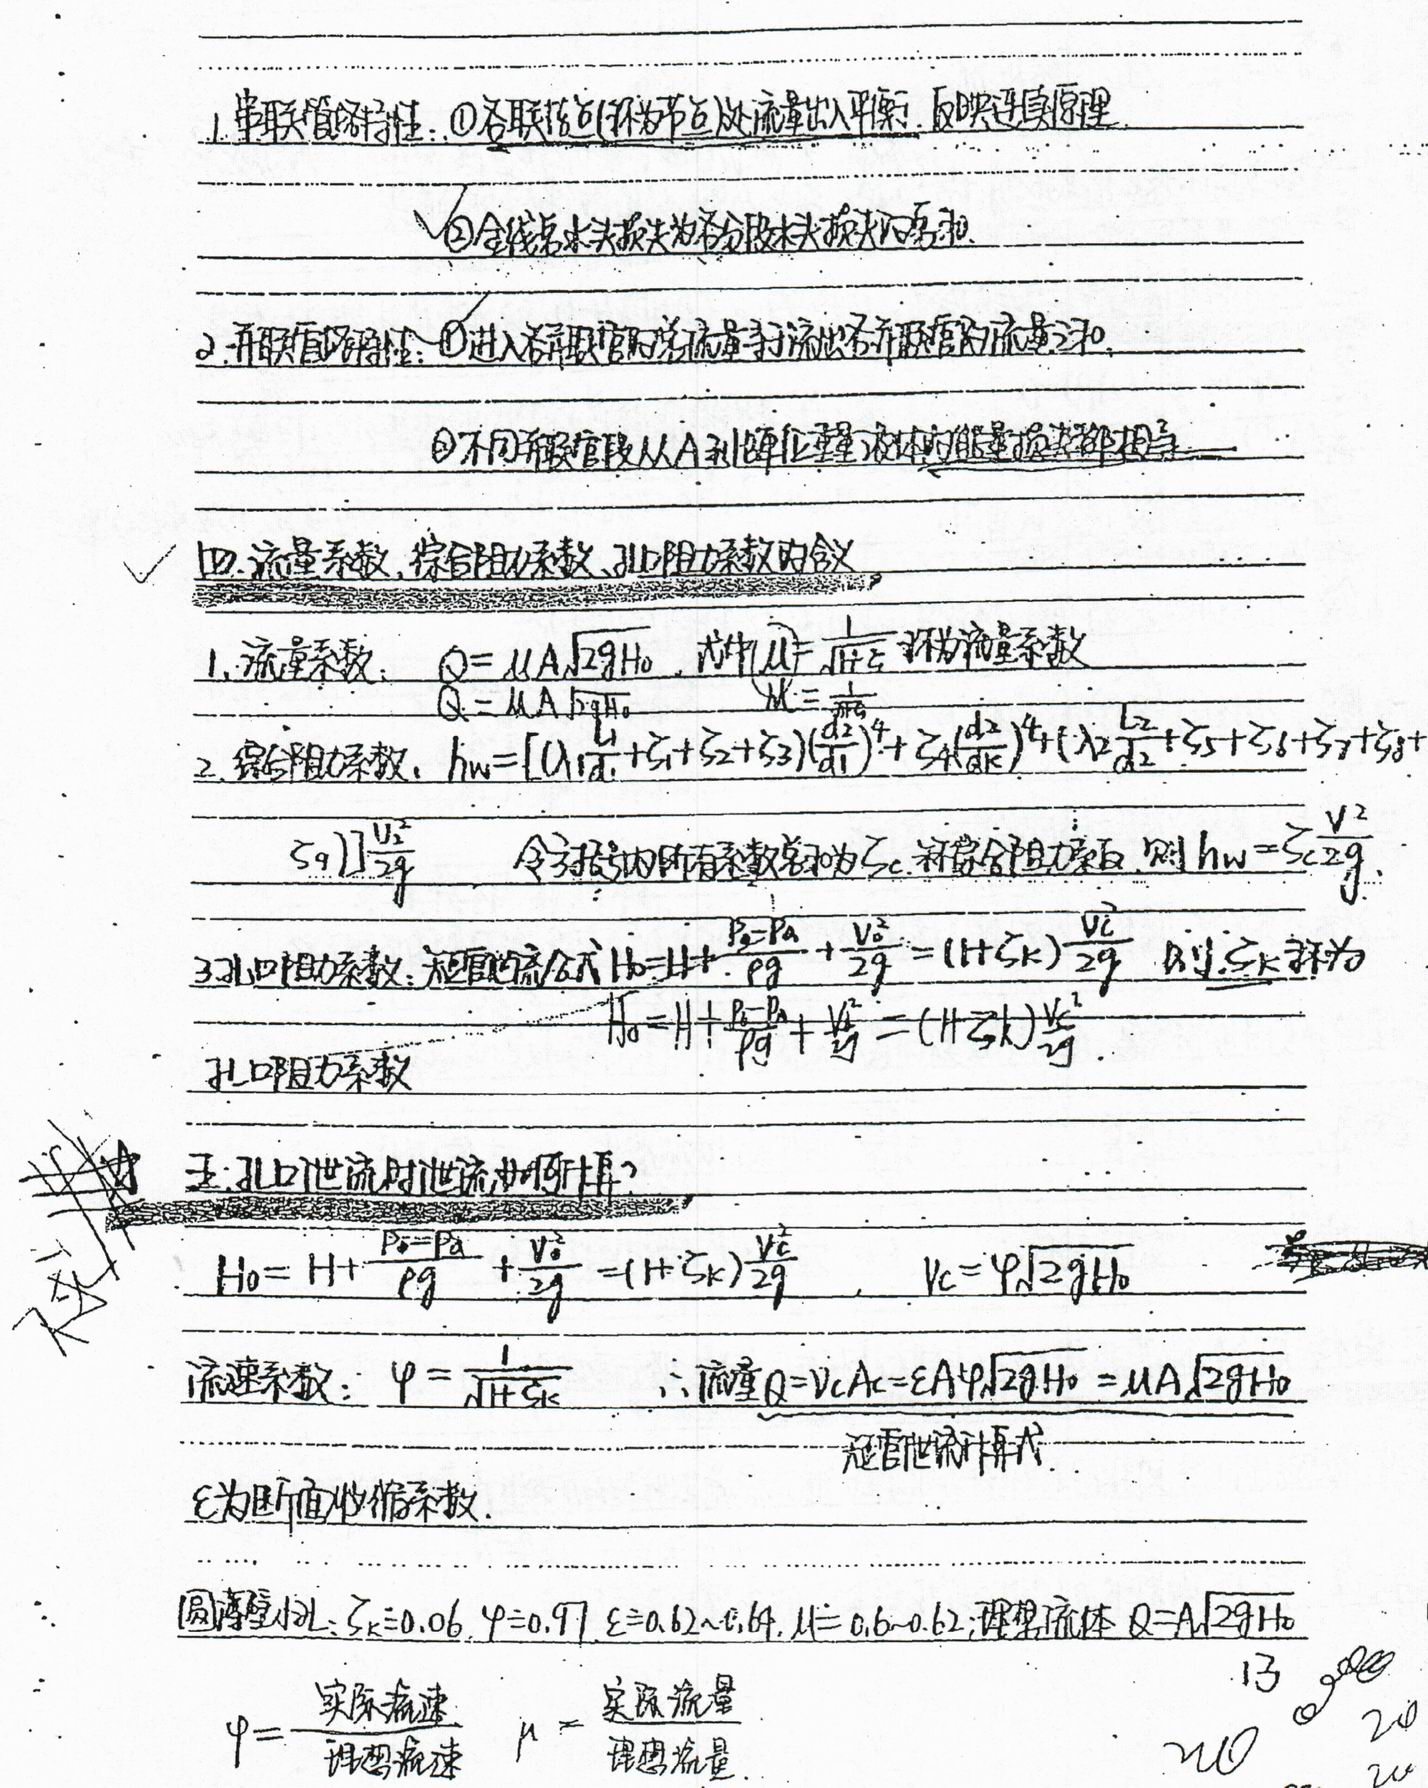 1.串联管路特性:①各联结点(称为节点)处流量出入平衡.反映连续原理.
②全线总水头损失为各分段水头损失的总和.
2.并联管路特性:①进入各并联管的总流量等于流出各并联管的流量之和.
②不同并联管段从A到B单位重量液体的能量损失都相等
四.流量系数、综合阻力系数、孔口阻力系数的含义
1.流量系数: Q=μA√2gH₀ .式中μ=1/√1+ζ 称为流量系数
Q=μA√2gH₀ μ=
2.综合阻力系数: hw=[(λ₁L₁/d₁+ζ₁+ζ₂+ζ₃)(d₂/d₁)⁴+ζ₄(d₂/dk)⁴+(λ₂L₂/d₂+ζ₅+ζ₆+ζ₇+ζ₈+
ζ₉)]V₂²/2g 令方括号内所有系数总和为ζc.称综合阻力系数.则hw=ζcV²/2g.
3.孔口阻力系数:短管泄流公式H₀=H+P₀-Pa/ρg+V₀²/2g=(1+ζk)Vc²/2g 则.ζk称为
H₀=H+P₀-Pa/ρg+V₀²/2g=(1+ζk)Vc²/2g.
孔口阻力系数
五.孔口泄流时泄流如何计算?
H₀=H+P₀-Pa/ρg+V₀²/2g=(1+ζk)Vc²/2g . Vc=φ√2gH₀
流速系数: φ=1/√1+ζk ∴流量Q=VcAc=εAφ√2gH₀=μA√2gH₀
短管泄流计算式.
ε为断面收缩系数.
圆薄壁小孔:ζk=0.06.φ=0.97.ε=0.62~0.64.μ=0.6~0.62;理想流体 Q=A√2gH₀
13
φ=实际流速/理想流速 μ=实际流量/理想流量.
20